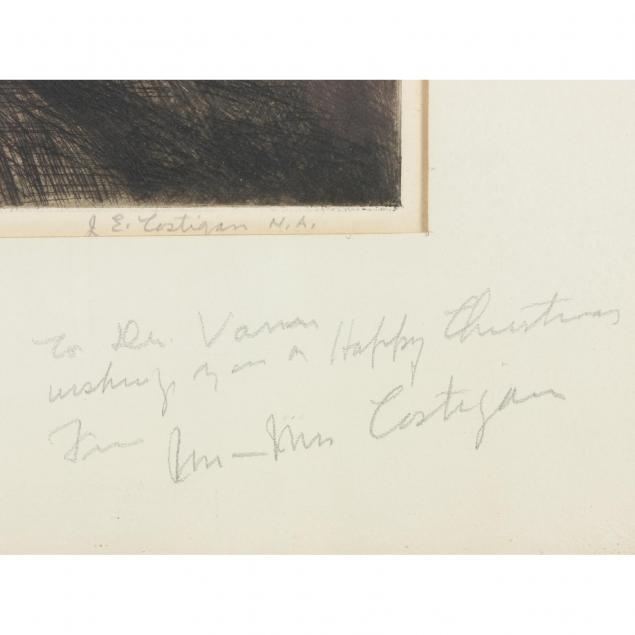 J E. Costigan N.A.
To Dr. Varian
wishing you a Happy Christmas
From Mr – Mrs Costigan